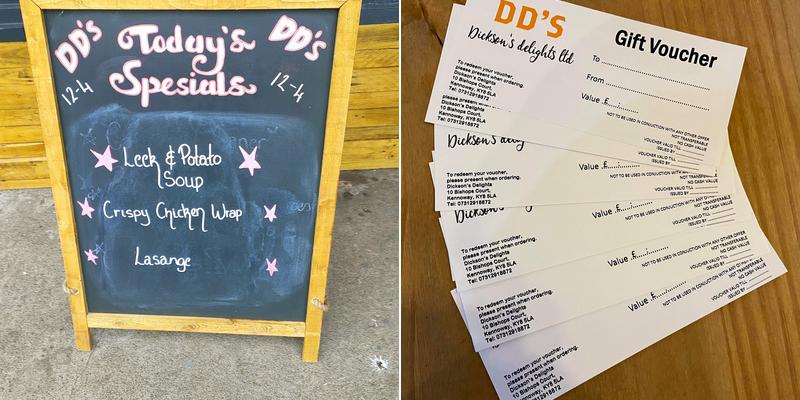 DD's
Today's
DD's
Spesials
12-4
12-4
Leek & Potato
Soup
Crispy Chicken Wrap
Lasange
DD'S
Dickson's delights ltd
Gift Voucher
To
From
Value £
To redeem your voucher,
please present when ordering.
Dickson's Delights
10 Bishops Court,
Kennoway, KY8 5LA
Tel: 07312918872
NOT TO BE USED IN CONJUCTION WITH ANY OTHER OFFER
NOT TRANSFERABLE
NO CASH VALUE
VOUCHER VALID TILL
ISSUED BY
please present when ordering.
Dickson's Delights
10 Bishops Court,
Kennoway, KY8 5LA
Tel: 07312918872
Dickson's
Value £
NOT TO BE USED IN CONJUCTION WITH ANY OTHER OFFER
NOT TRANSFERABLE
NO CASH VALUE
VOUCHER VALID TILL
ISSUED BY
To redeem your voucher,
please present when ordering.
Dickson's Delights
10 Bishops Court,
Kennoway, KY8 5LA
Tel: 07312918872
Dickson's
Value £
NOT TO BE USED IN CONJUCTION WITH ANY OTHER OFFER
NOT TRANSFERABLE
NO CASH VALUE
VOUCHER VALID TILL
ISSUED BY
To redeem your voucher,
please present when ordering.
Dickson's Delights
10 Bishops Court,
Kennoway, KY8 5LA
Tel: 07312918872
Value £
NOT TO BE USED IN CONJUCTION WITH ANY OTHER OFFER
NOT TRANSFERABLE
NO CASH VALUE
VOUCHER VALID TILL
ISSUED BY
To redeem your voucher,
please present when ordering.
Dickson's Delights
10 Bishops Court,
Kennoway, KY8 5LA
Tel: 07312918872
Value £
NOT TO BE USED IN CONJUCTION WITH ANY OTHER OFFER
NOT TRANSFERABLE
NO CASH VALUE
VOUCHER VALID TILL
ISSUED BY
To redeem your voucher,
please present when ordering.
Dickson's Delights
10 Bishops Court,
Kennoway, KY8 5LA
Tel: 07312918872